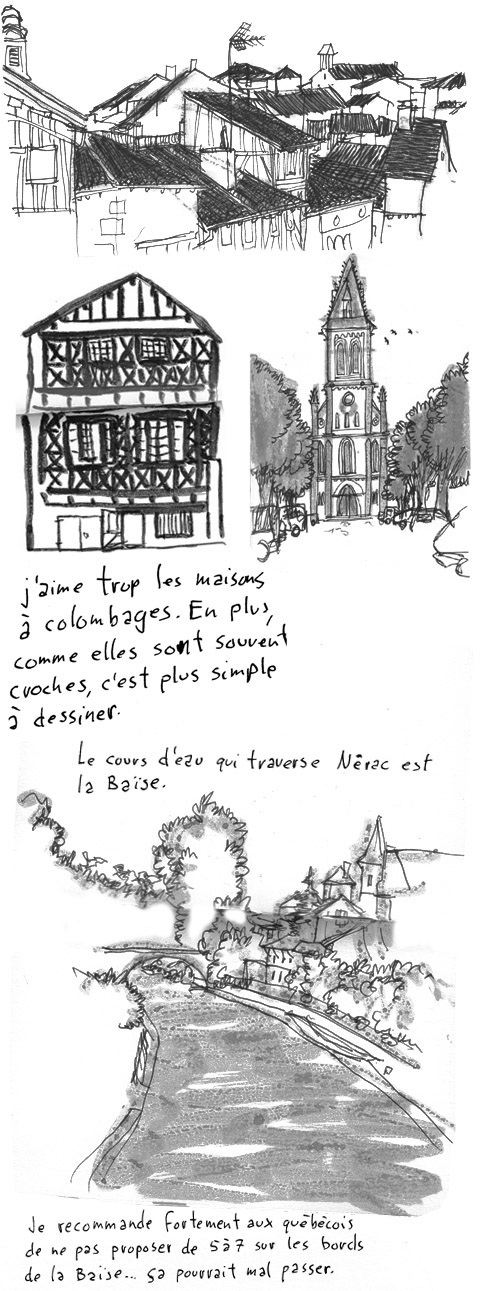 j'aime trop les maisons
à colombages. En plus,
comme elles sont souvent
croches, c'est plus simple
à dessiner.
Le cours d'eau qui traverse Nérac est
la Baïse.
Je recommande fortement aux québécois
de ne pas proposer de 5à7 sur les bords
de la Baïse... ça pourrait mal passer.